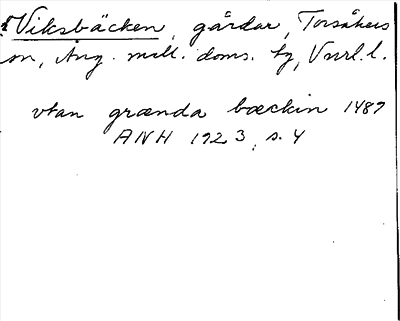 Viksbäcken, gårdar, Torsåkers
sn, Ång. mell. doms. tg, Vnrl. l.
utan grænda bæckin 1489
ANH 1923, s. 4